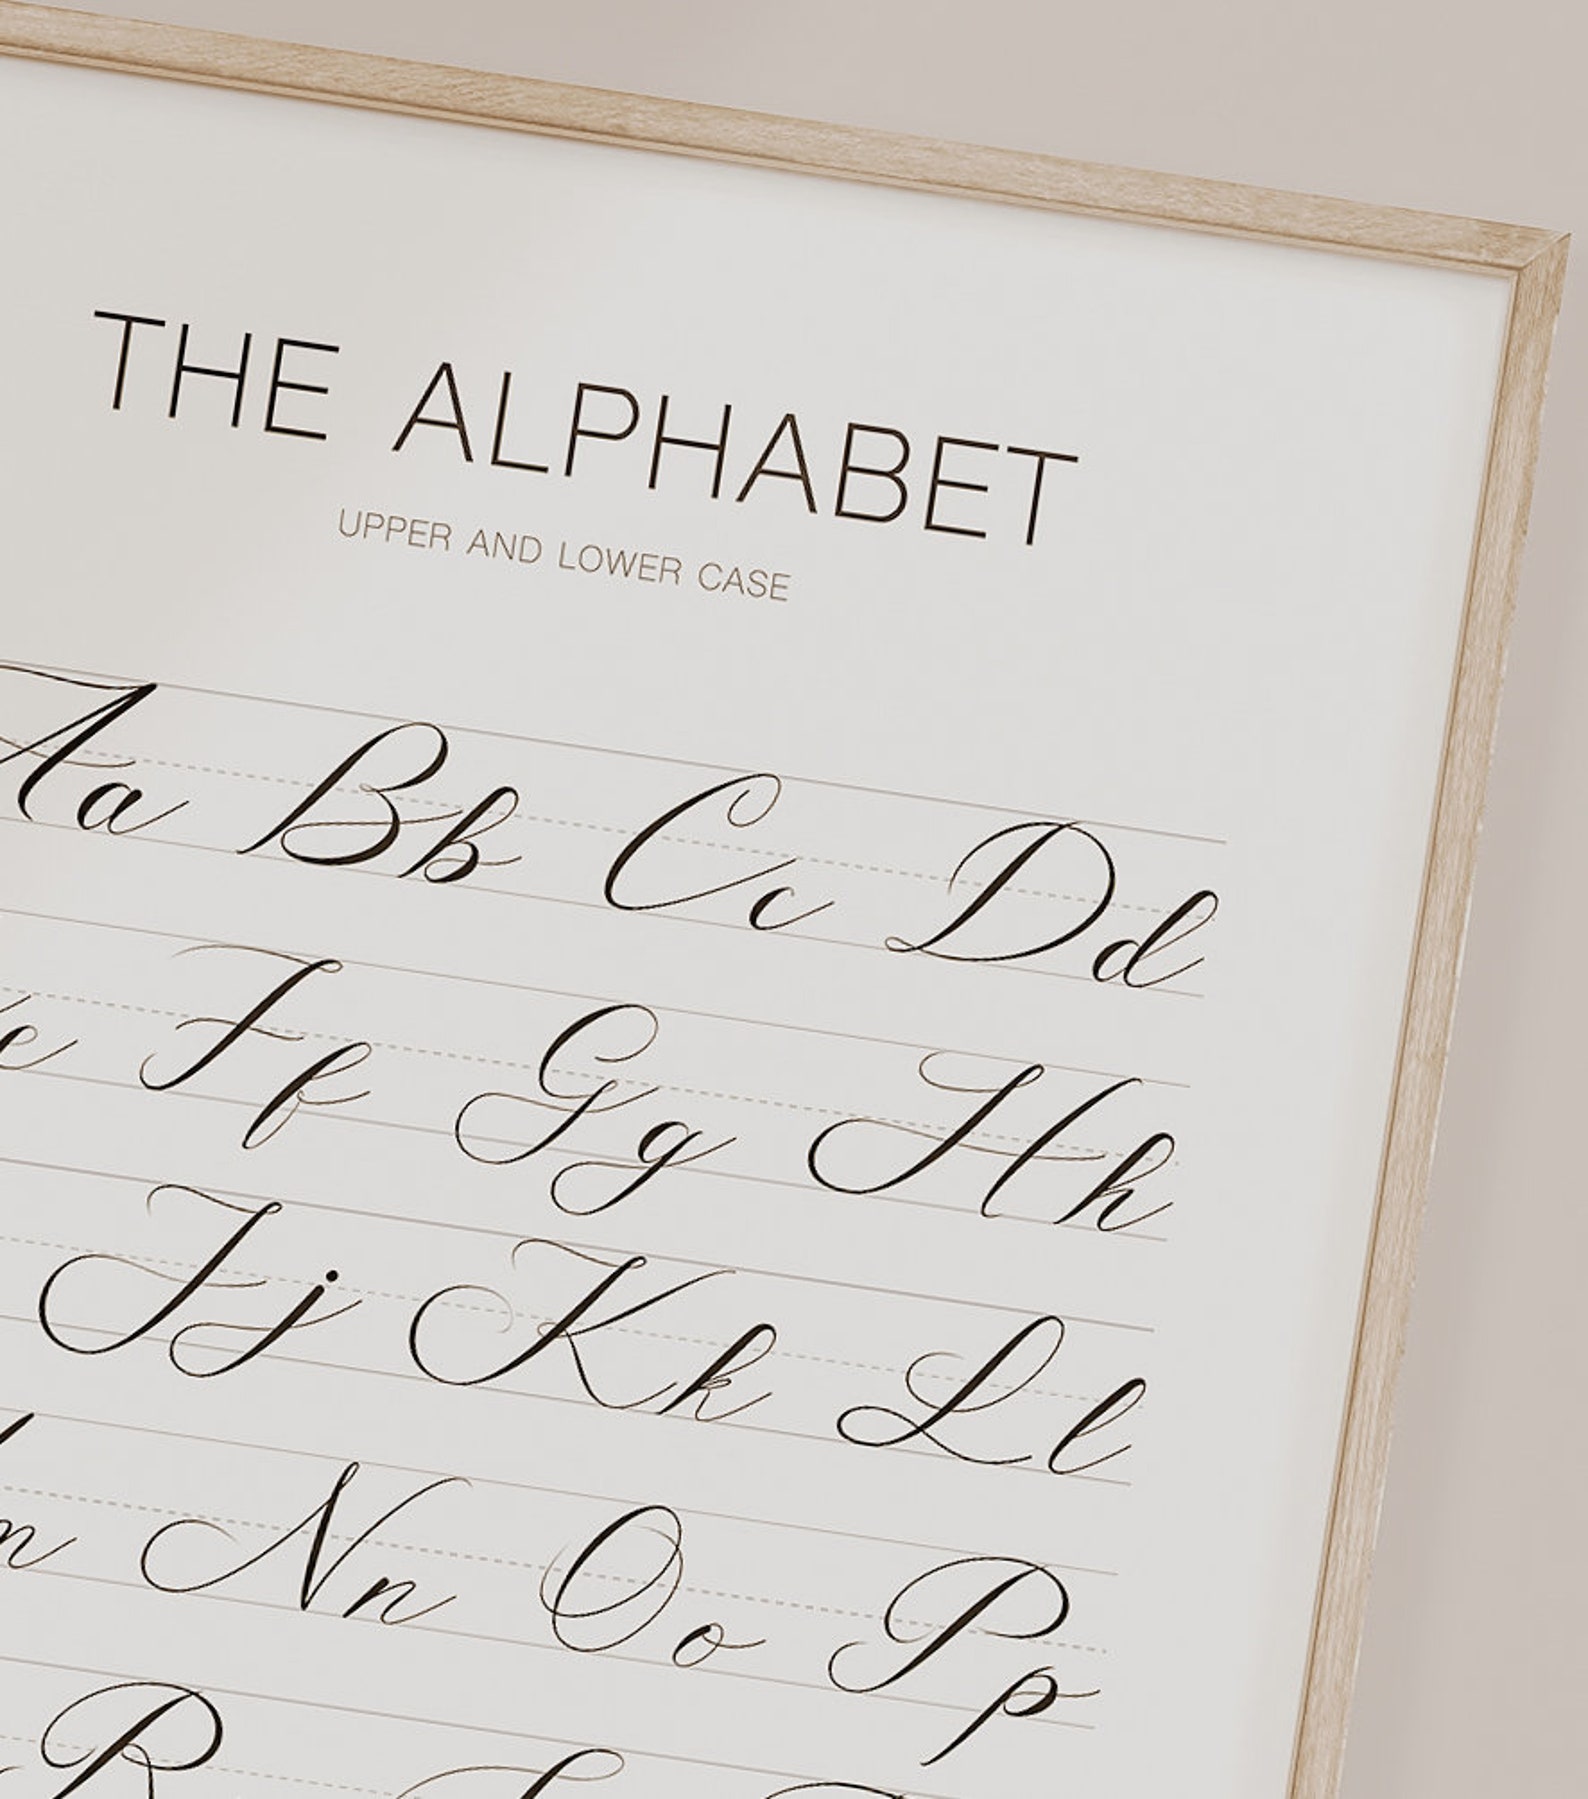 THE ALPHABET
UPPER AND LOWER CASE
Aa Bb Cc Dd
e Ff Gg Hh
Jj Kk Ll
m Nn Oo Pp
R